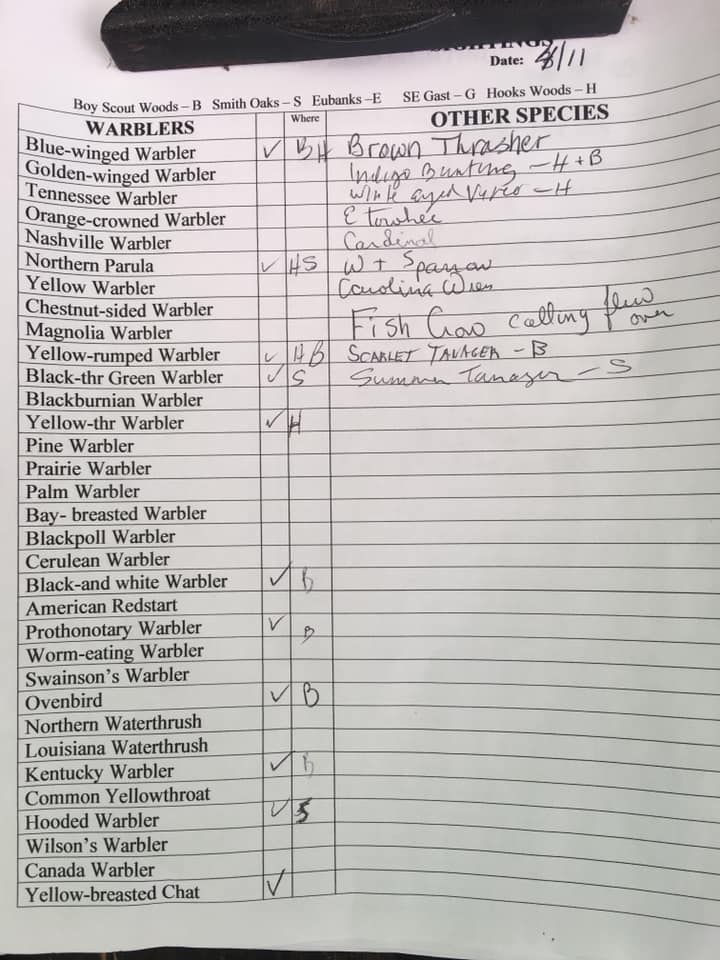 SIGHTINGS
Date: 4/11
Boy Scout Woods – B Smith Oaks – S Eubanks – E SE Gast – G Hooks Woods – H
WARBLERS Where OTHER SPECIES
Blue-winged Warbler ✓ BH Brown Thrasher
Golden-winged Warbler Indigo Bunting – H + B
Tennessee Warbler White eyed Vireo – H
Orange-crowned Warbler E Towhee
Nashville Warbler Cardinal
Northern Parula ✓ HS W T Sparrow
Yellow Warbler Carolina Wren
Chestnut-sided Warbler
Magnolia Warbler Fish Crow calling flew over
Yellow-rumped Warbler ✓ HB SCARLET TANAGER – B
Black-thr Green Warbler ✓ S Summer Tanager – S
Blackburnian Warbler
Yellow-thr Warbler ✓ H
Pine Warbler
Prairie Warbler
Palm Warbler
Bay- breasted Warbler
Blackpoll Warbler
Cerulean Warbler
Black-and white Warbler ✓ B
American Redstart
Prothonotary Warbler ✓ B
Worm-eating Warbler
Swainson's Warbler
Ovenbird ✓ B
Northern Waterthrush
Louisiana Waterthrush
Kentucky Warbler ✓ B
Common Yellowthroat
Hooded Warbler ✓ S
Wilson's Warbler
Canada Warbler
Yellow-breasted Chat ✓